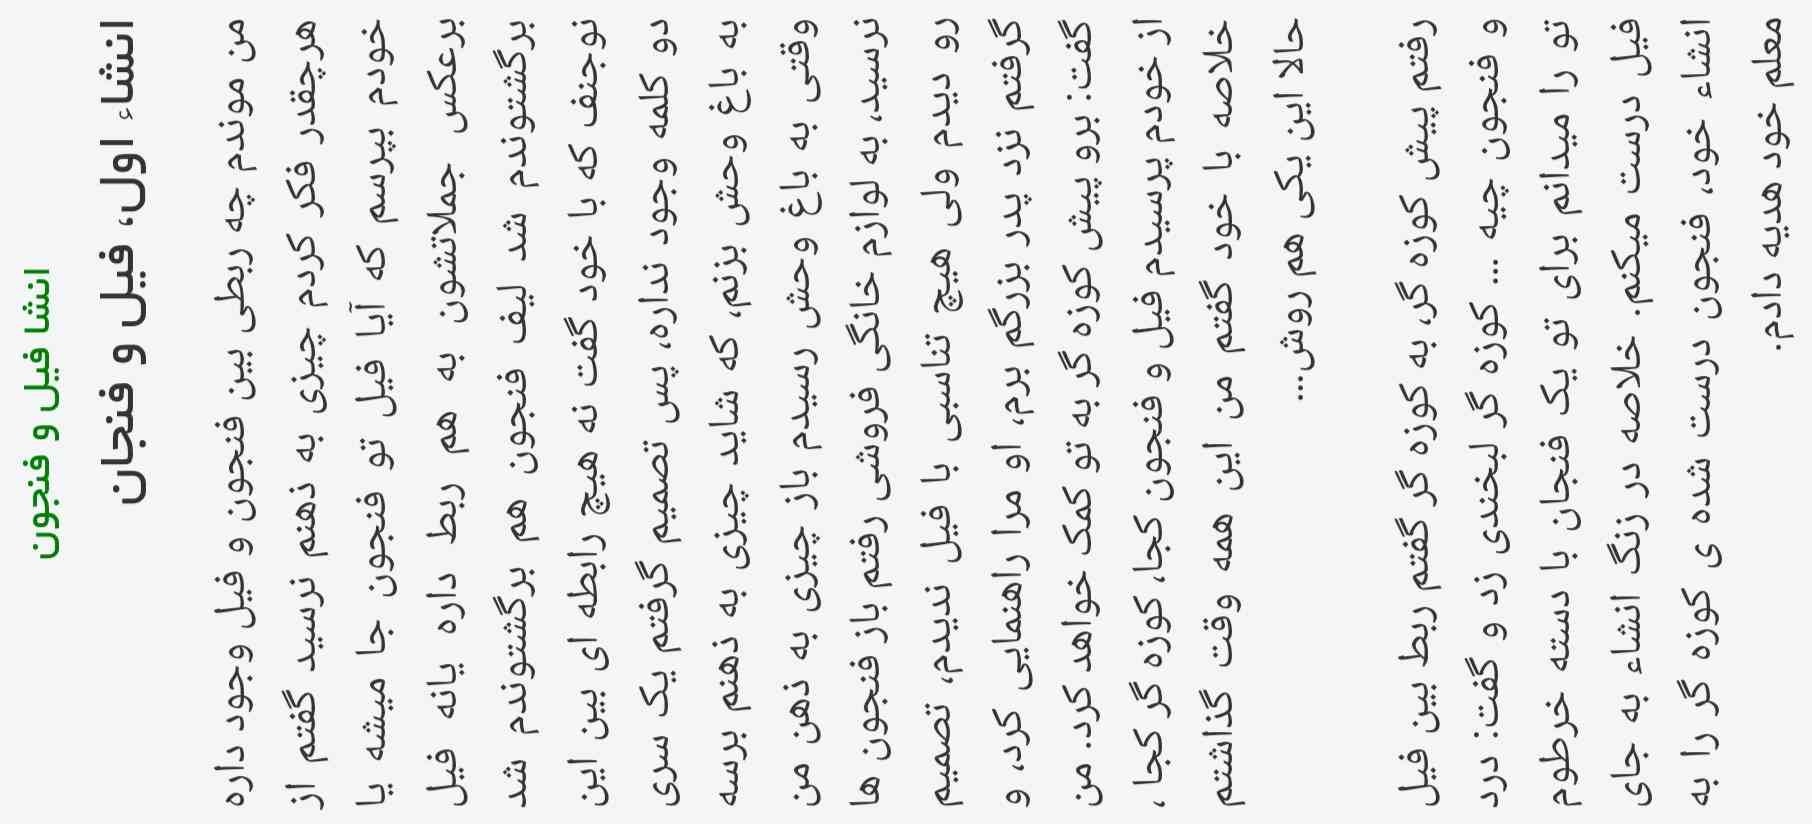 انشا فیل و فنجون
انشاء اول، فیل و فنجان
من موندم چه ربطی بین فنجون و فیل وجود داره
هرچقدر فکر کردم چیزی به ذهنم نرسید گفتم از
خودم بپرسم که آیا فیل تو فنجون جا میشه یا
برعکس جملاتشون به هم ربط داره یانه فیل
برگشتوندم شد لیف فنجون هم برگشتوندم شد
نوجنف که با خود گفت نه هیچ رابطه ای بین این
دو کلمه وجود نداره، پس تصمیم گرفتم یک سری
به باغ وحش بزنم، که شاید چیزی به ذهنم برسه
وقتی به باغ وحش رسیدم باز چیزی به ذهن من
نرسید، به لوازم خانگی فروشی رفتم باز فنجون ها
رو دیدم ولی هیچ تناسبی با فیل ندیدم، تصمیم
گرفتم نزد پدر بزرگم برم، او مرا راهنمایی کرد، و
گفت: برو پیش کوزه گر به تو کمک خواهد کرد. من
از خودم پرسیدم فیل و فنجون کجا، کوزه گر کجا ،
خلاصه با خود گفتم من این همه وقت گذاشتم
حالا این یکی هم روش...
رفتم پیش کوزه گر، به کوزه گر گفتم ربط بین فیل
و فنجون چیه ... کوزه گر لبخندی زد و گفت: درد
تو را میدانم برای تو یک فنجان با دسته خرطوم
فیل درست میکنم. خلاصه در زنگ انشاء به جای
انشاء خود، فنجون درست شده ی کوزه گر را به
معلم خود هدیه دادم.